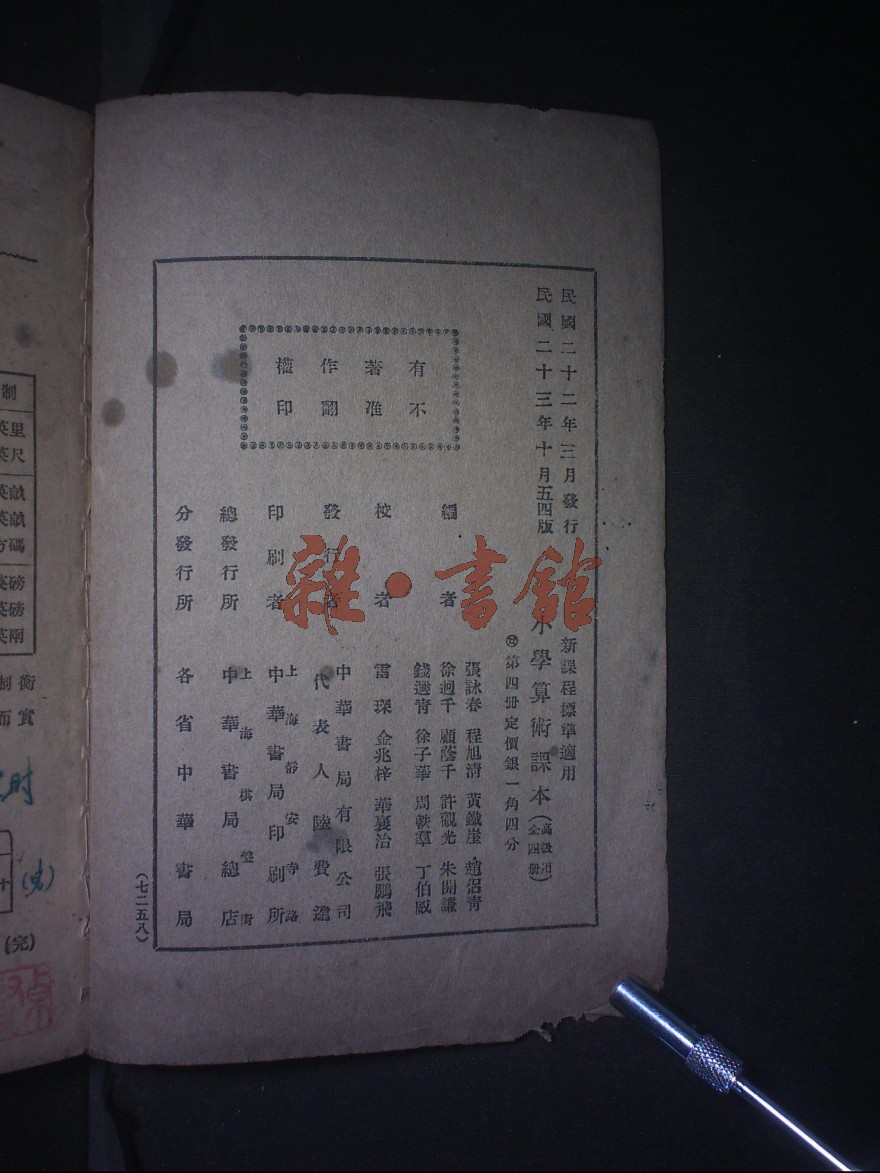 民國二十二年三月發行
民國二十三年十月五四版
新課程標準適用
小學算術課本（高級用全四册）
第四册定價銀一角四分
有著作權
不准翻印
編者
張詠春 程旭清 黃鐵崖 趙侶青
徐迥千 顧蔭千 許觀光 朱開謙
錢選青 徐子華 周軼羣 丁伯威
校者
雷琛 金兆梓 華襄治 張鵬飛
發行者
中華書局有限公司
代表人 陸費逵
印刷者
上海靜安寺路
中華書局印刷所
總發行所
上海棋盤街
中華書局總店
分發行所
各省中華書局
（七二五八）
雜·書館
制
英里
英尺
英畝
英畝
方碼
英磅
英磅
英兩
衡
制
實
而
时
(完)